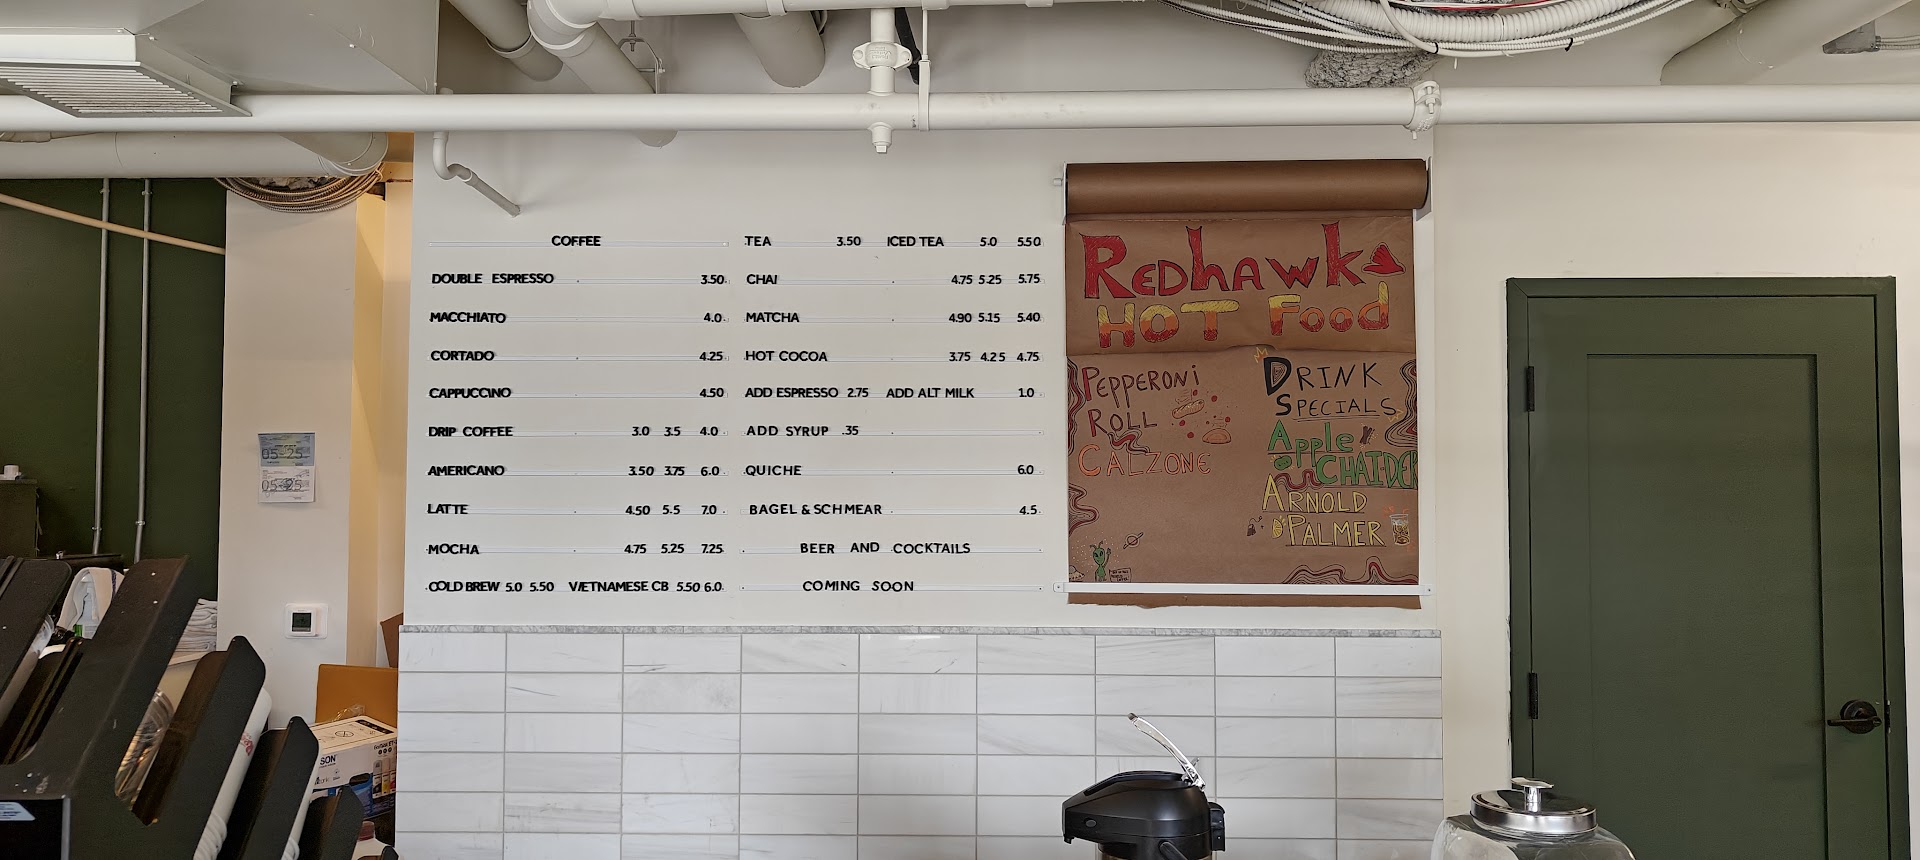 COFFEE
DOUBLE ESPRESSO 3.50
MACCHIATO 4.0
CORTADO 4.25
CAPPUCCINO 4.50
DRIP COFFEE 3.0 3.5 4.0
AMERICANO 3.50 3.75 6.0
LATTE 4.50 5.5 7.0
MOCHA 4.75 5.25 7.25
COLD BREW 5.0 5.50 VIETNAMESE CB 5.50 6.0
TEA 3.50 ICED TEA 5.0 5.50
CHAI 4.75 5.25 5.75
MATCHA 4.90 5.15 5.40
HOT COCOA 3.75 4.25 4.75
ADD ESPRESSO 2.75 ADD ALT MILK 1.0
ADD SYRUP .35
QUICHE 6.0
BAGEL & SCHMEAR 4.5
BEER AND COCKTAILS
COMING SOON
REDHAWK
HOT Food
PEPPERONI
ROLL
CALZONE
DRINK
SPECIALS
Apple
CHAI-DER
ARNOLD
PALMER
05-25
05-25
SON